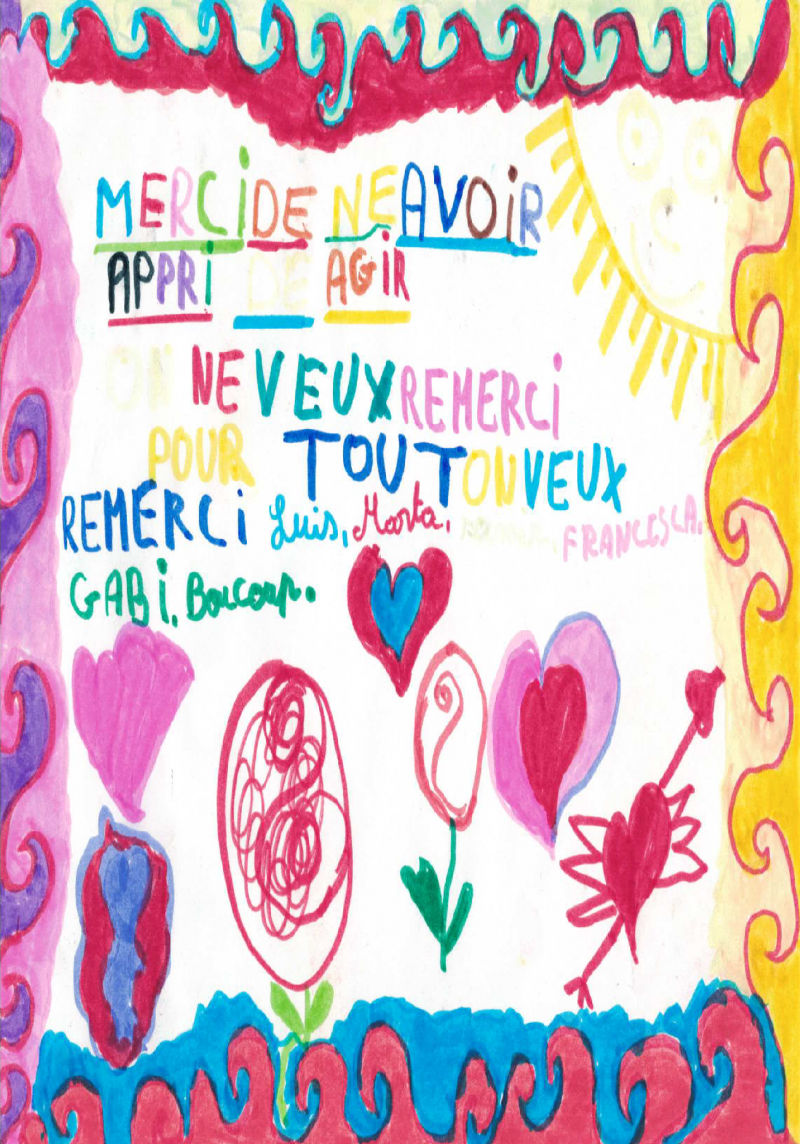 MERCI DE NE AVOIR
APPRI DE AGIR
ON NE VEUX REMERCI
POUR TOUT ON VEUX
REMERCI Luis, Marta, FRANCISCA.
GABI,